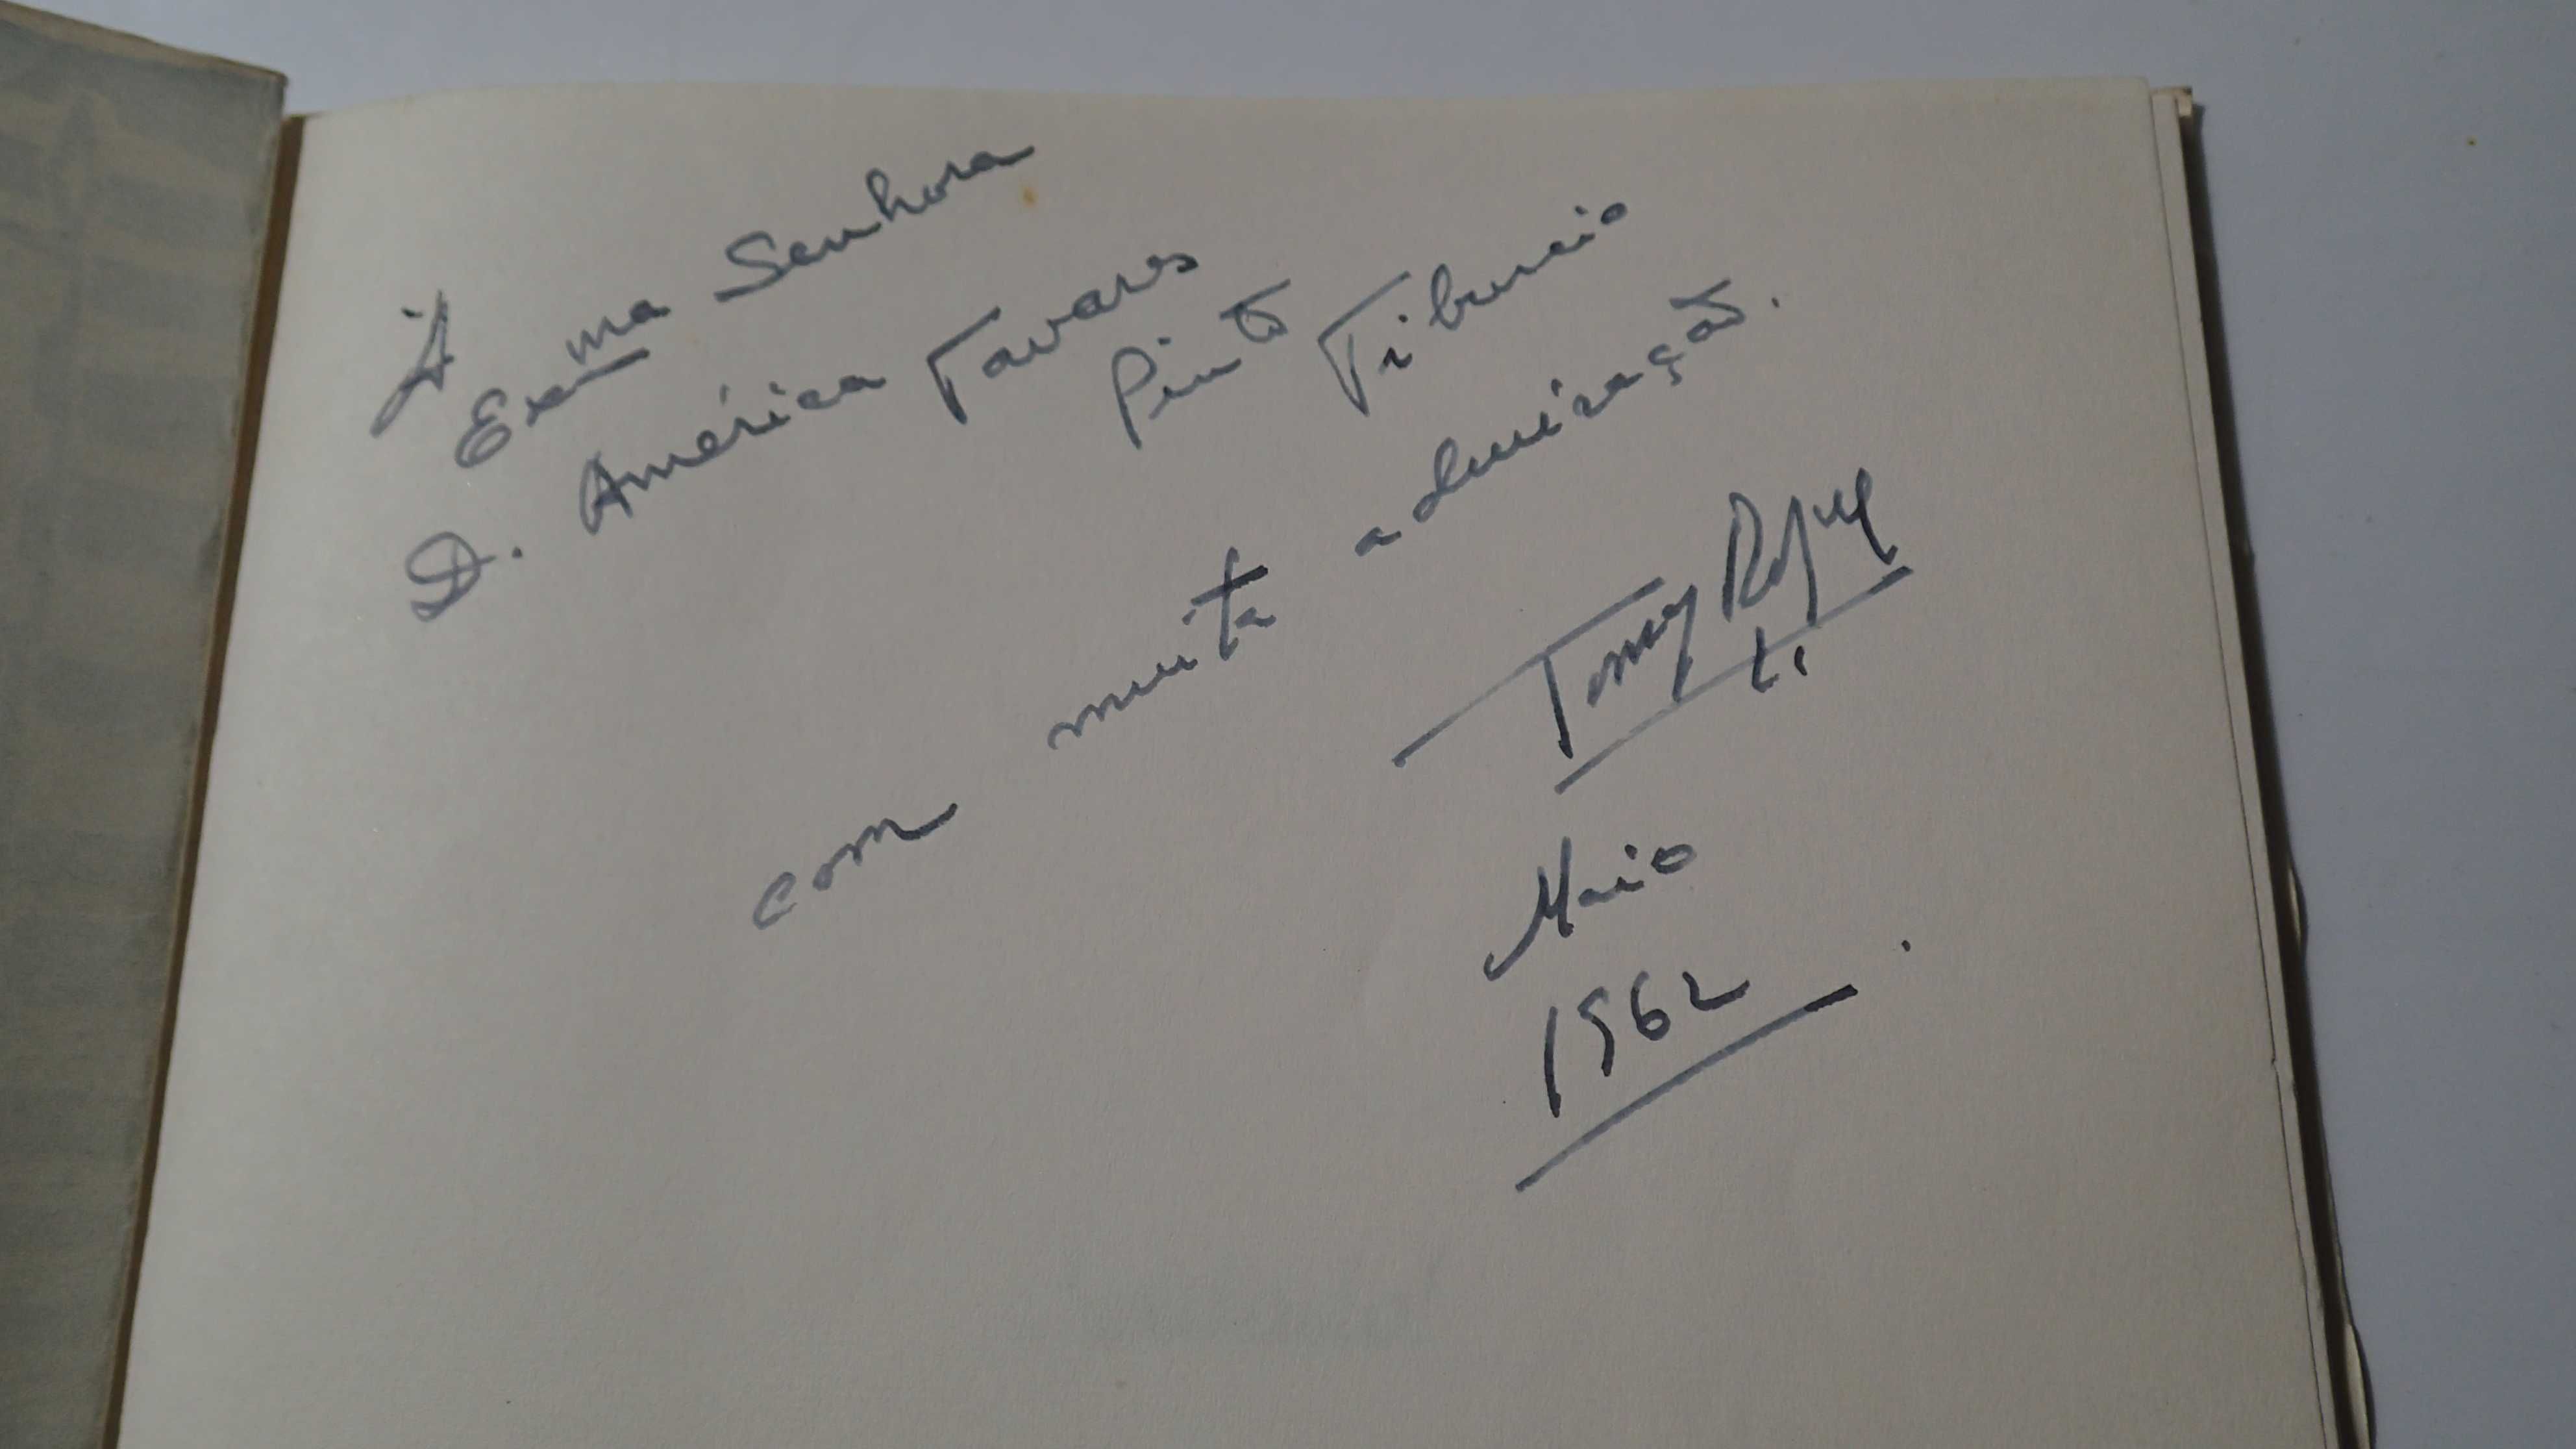 À
Exma Senhora
D. América Tavares
Pinto Tiburcio
com muita admiração.
Maio
1962